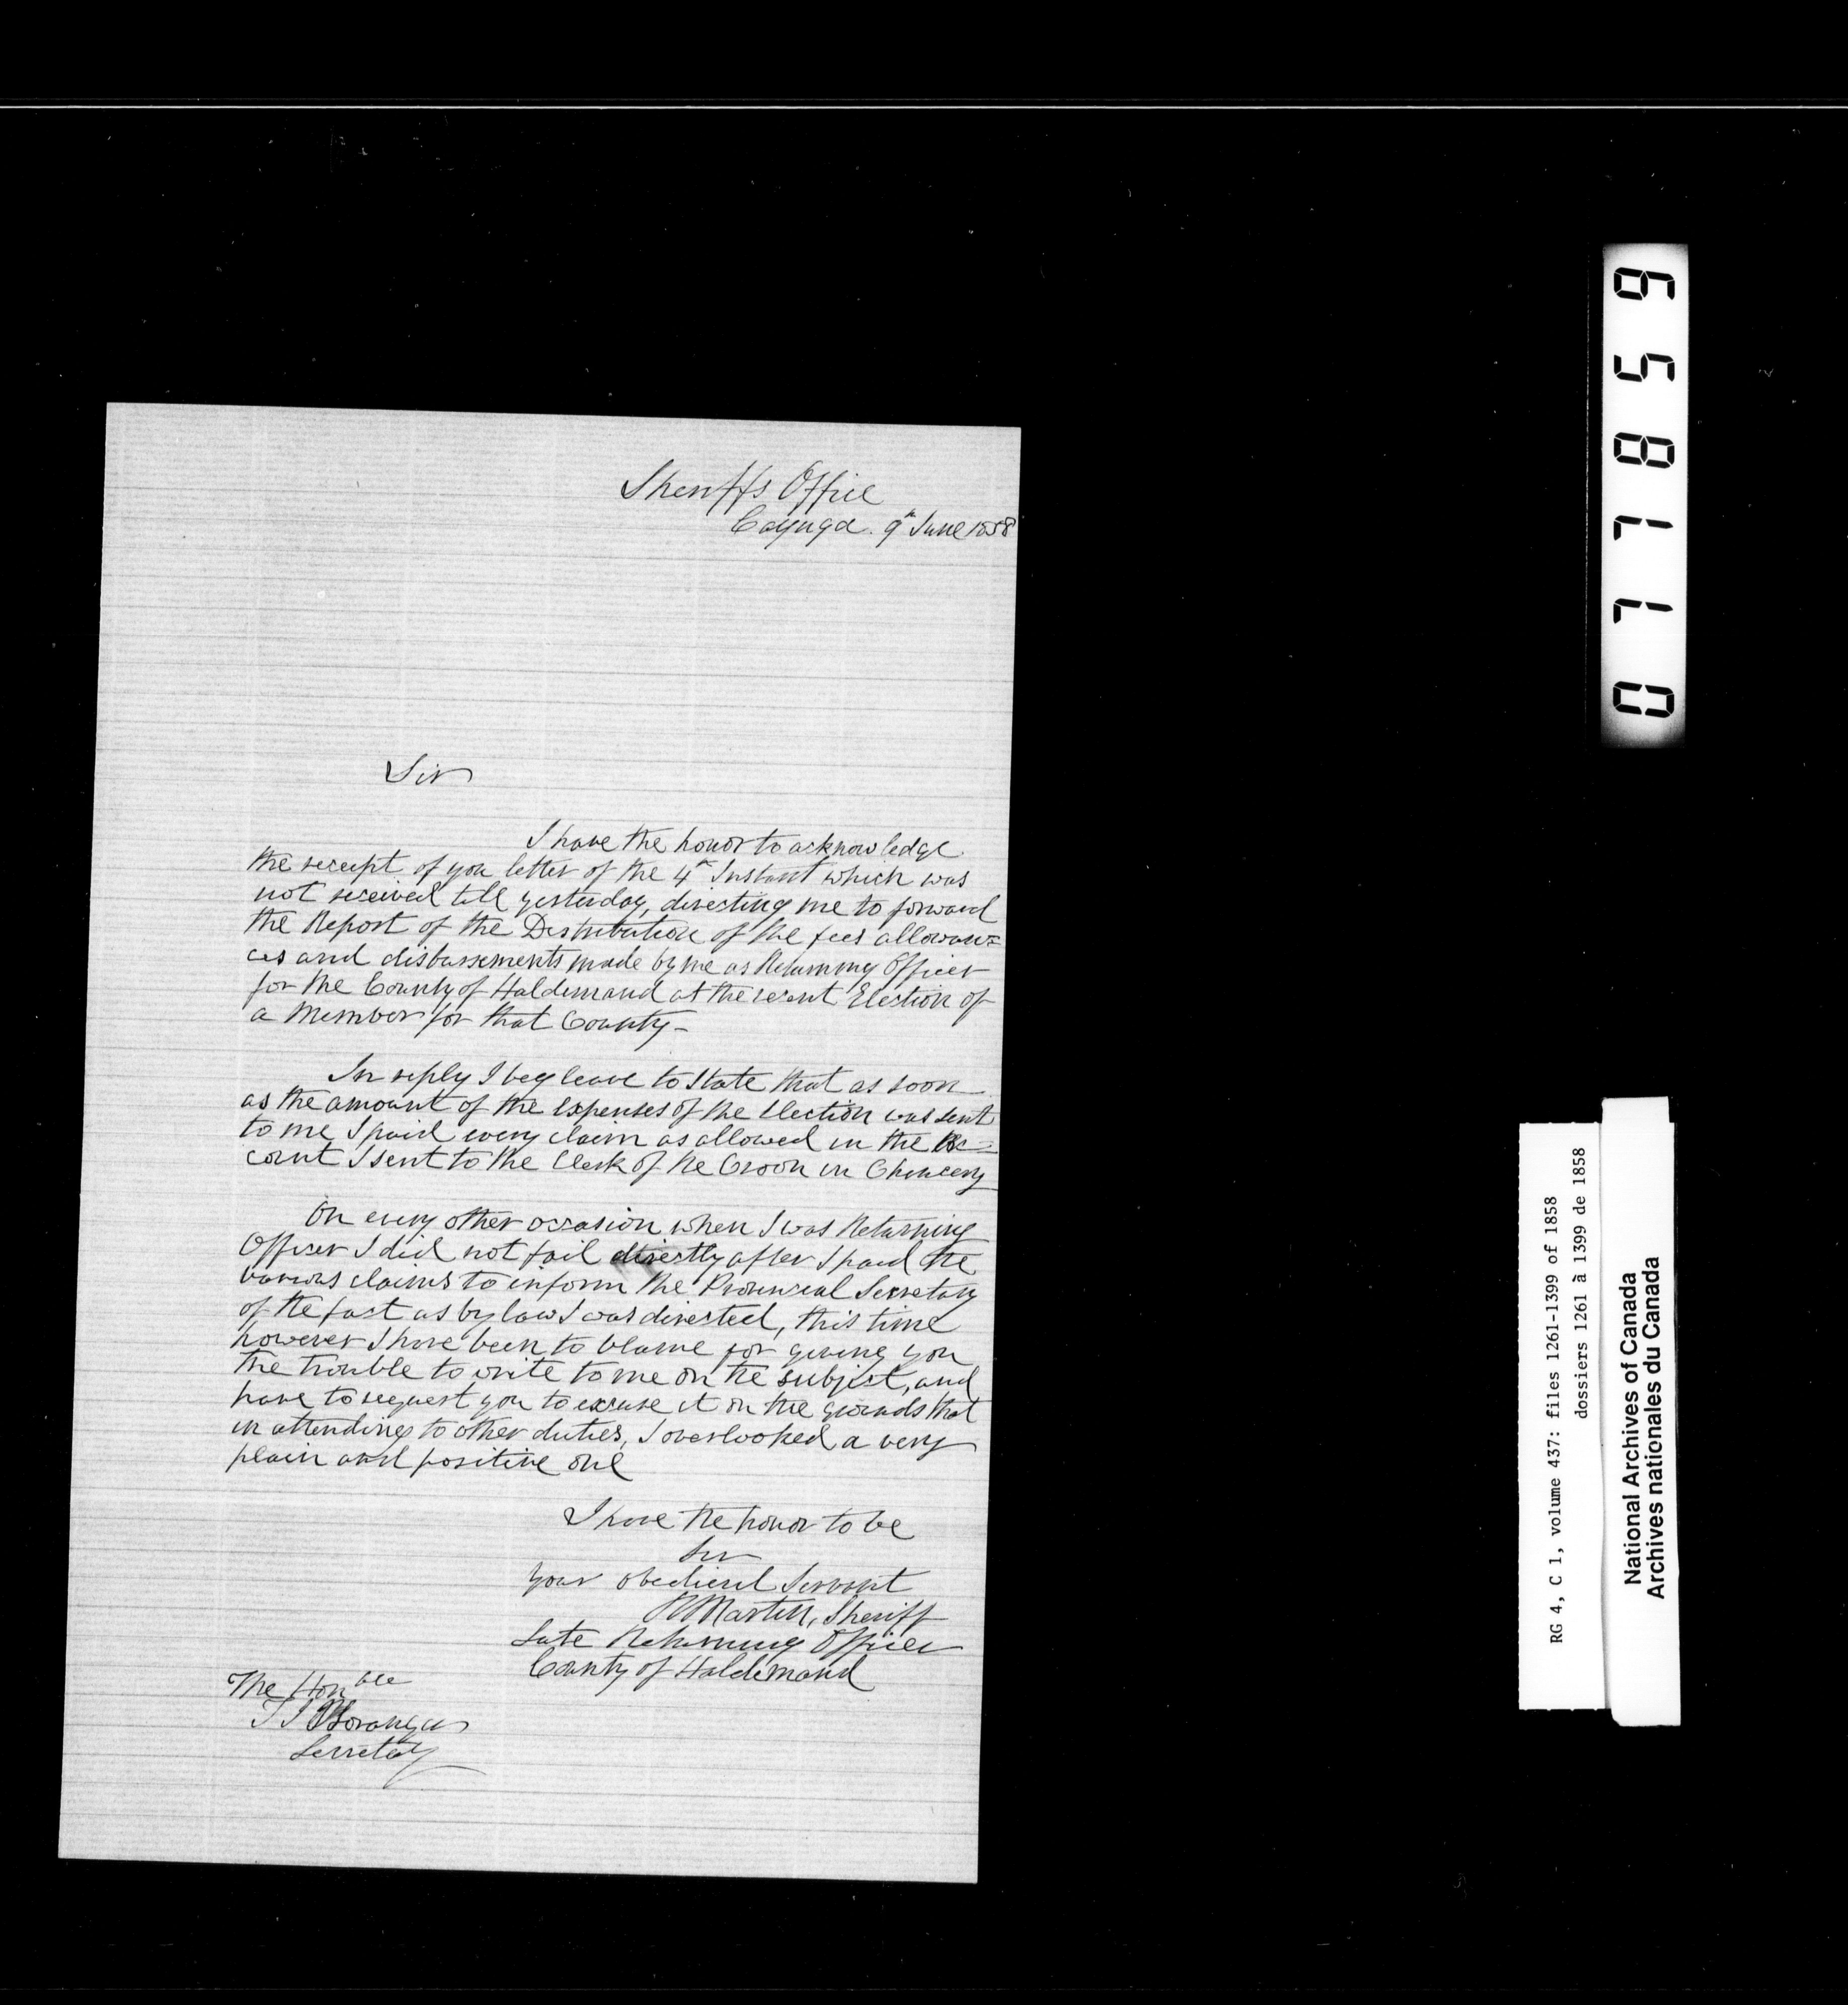 Sheriffs Office
Cayuga. 9th June 1858
Sir
I have the honor to acknowledge
the receipt of you letter of the 4th Instant which was
not received till yesterday, directing me to forward
the Report of the Distribution of the fees allowan=
ces and disbursements made by me as Returning Officer
for the County of Haldimand at the recent Election of
a Member for that County-
In reply I beg leave to State that as soon
as the amount of the expenses of the Election was sent
to me I paid every claim as allowed in the Ac=
count I sent to the Clerk of the Crown in Chancery
On every other occasion when I was Returning
Officer I did not fail directly after I paid the
various claims to inform the Provincial Secretary
of the fact as by law I was directed, this time
however I have been to blame for giving you
the trouble to write to me on the subject, and
have to request you to excuse it on the grounds that
in attending to other duties, I overlooked a very
plain and positive one
I have the honor to be
Sir
your obedient Servant
R Martin, Sheriff
Late Returning Officer
County of Haldimand
The Honble
T J J Loranger
Secretary
071859
RG 4, C 1, volume 437: files 1261-1399 of 1858
dossiers 1261 à 1399 de 1858
National Archives of Canada
Archives nationales du Canada